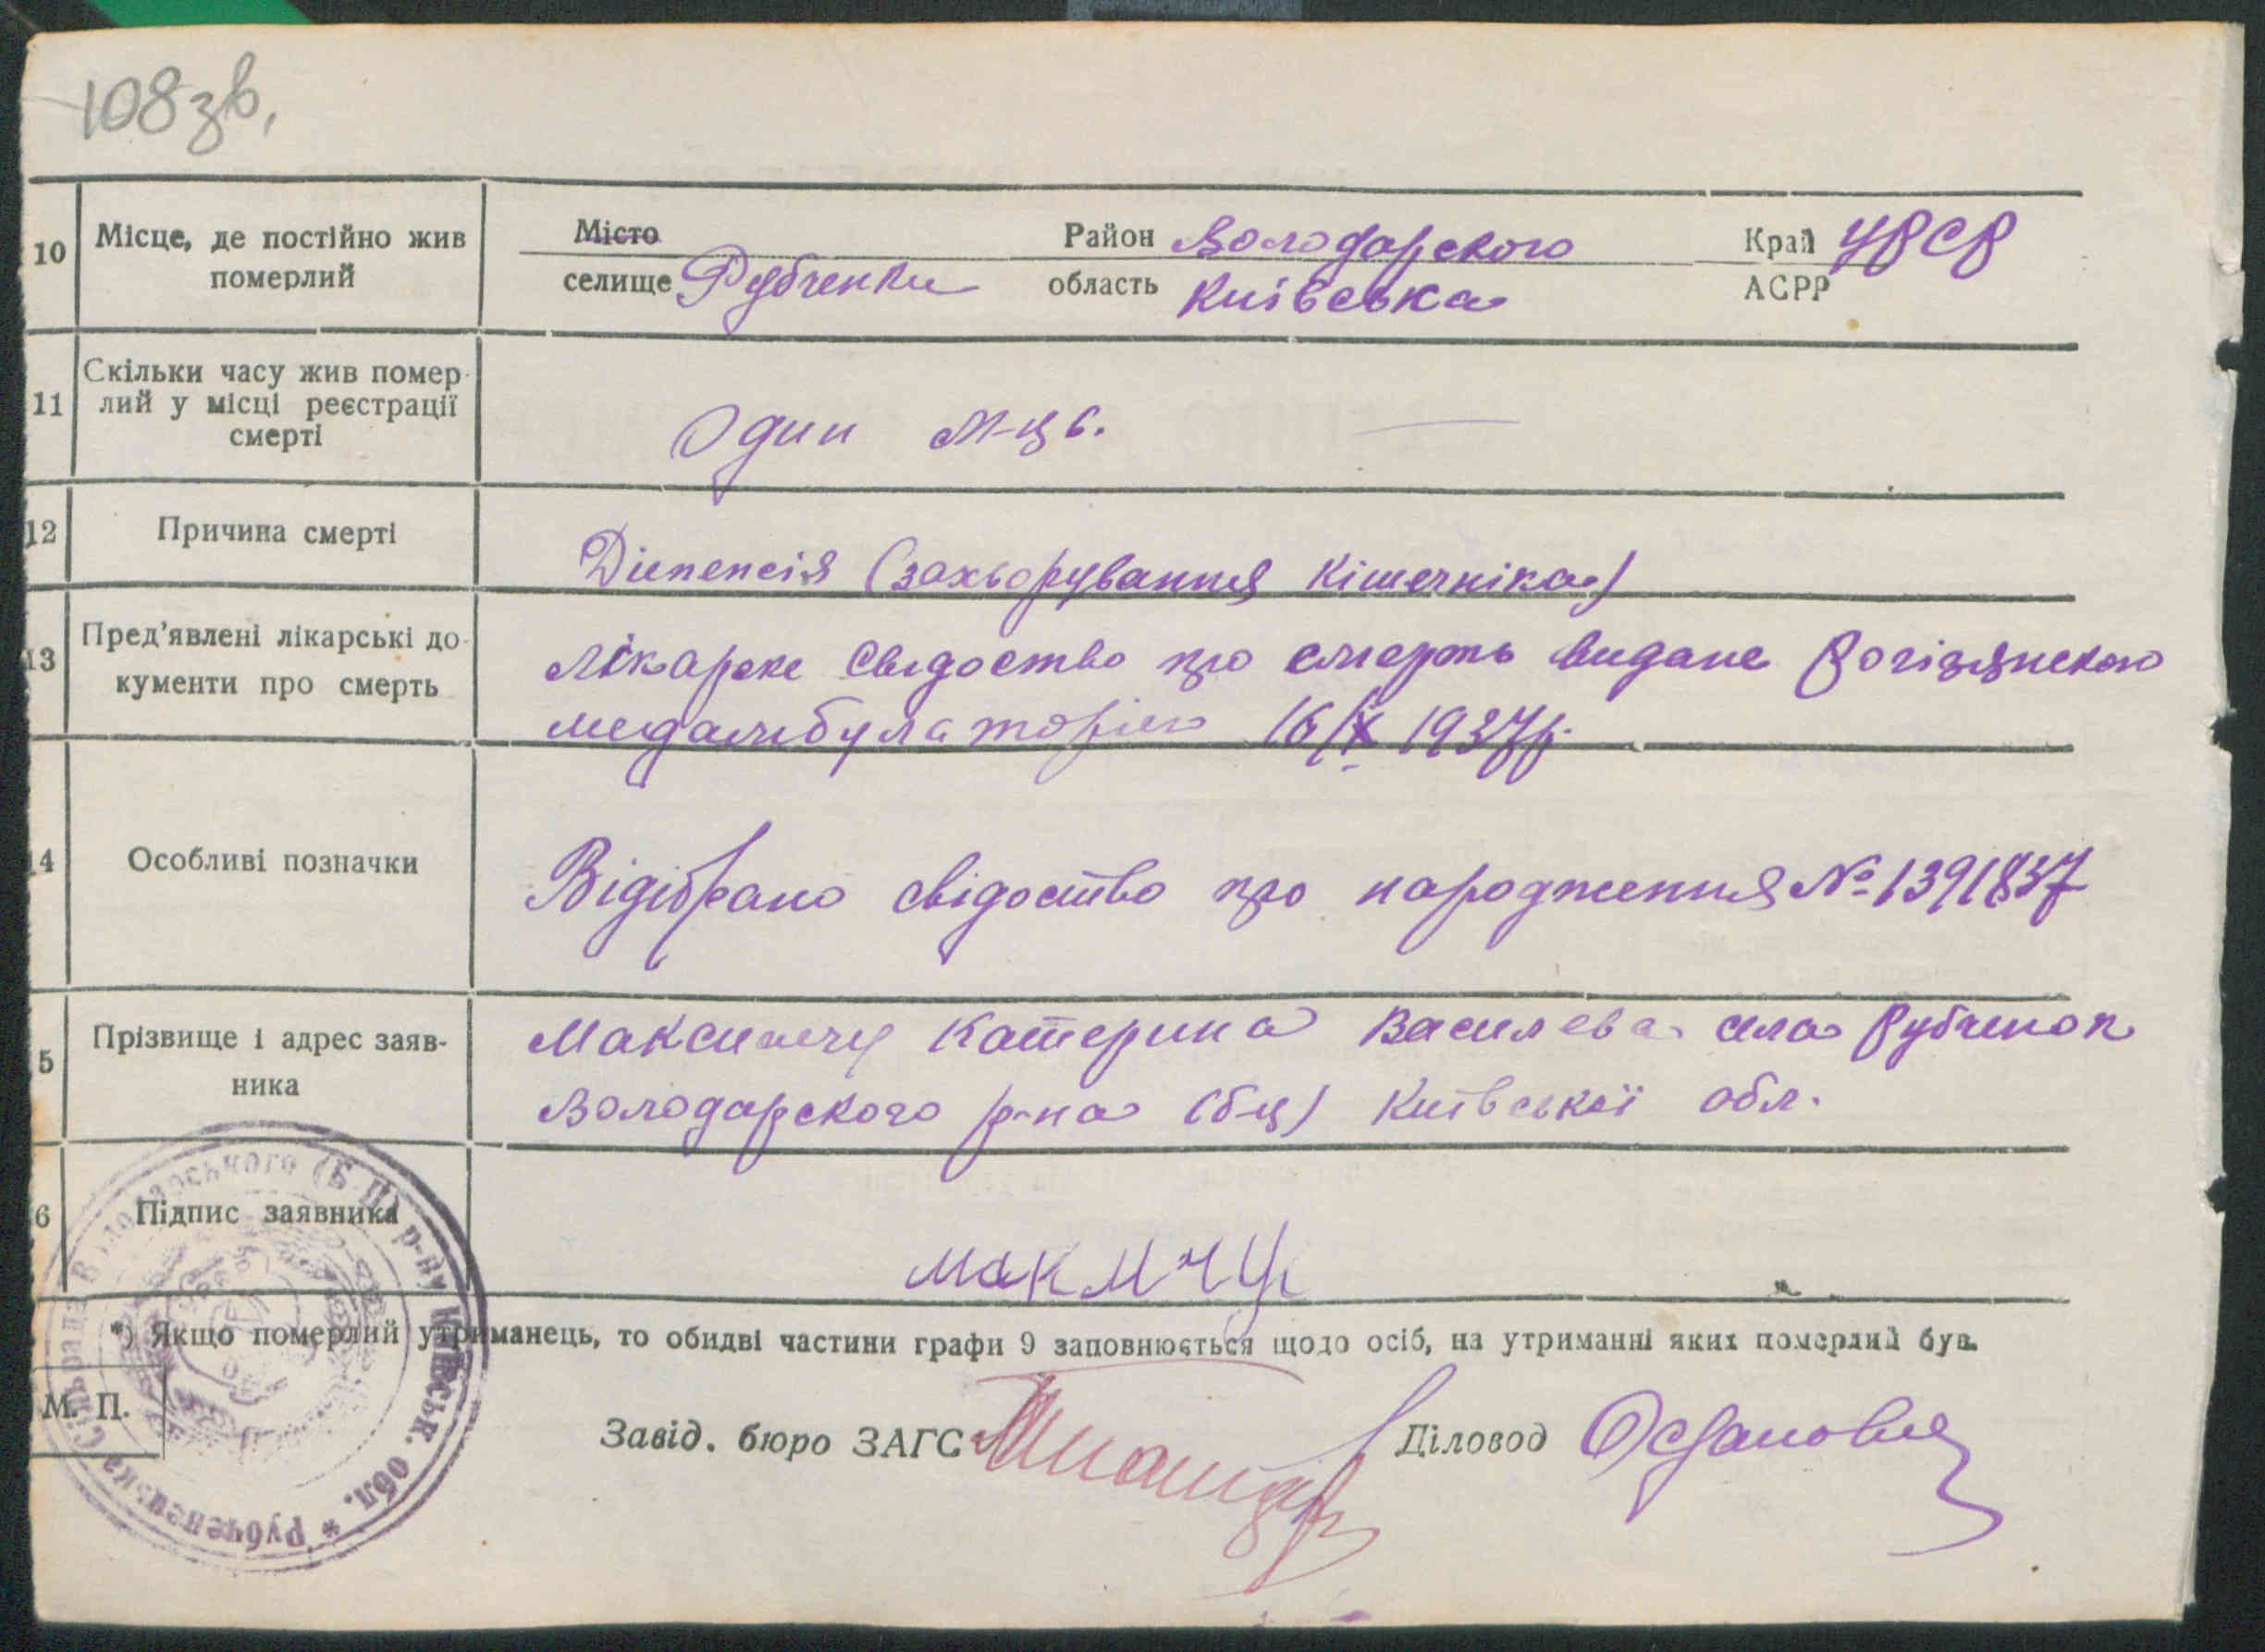 108 зв.
10 Місце, де постійно жив померлий
Місто Район Володарского Край УРСР
селище Рубченки область Київська АСРР
11 Скільки часу жив помер-
лий у місці реєстрації
смерті
Один м-ць.
12 Причина смерті
Діспепсія (захворування кішечніка)
13 Пред'явлені лікарські до-
кументи про смерть
Лікарске свідоство про смерть видане Рогізянскою
медамбулаторією 16/IX 1937 р.
4 Особливі позначки
Відібрано свідоство про народження № 1391837
5 Прізвище і адрес заяв-
ника
Катерина Василева села Рубченок
Володарского р-на (б-ц) Київської обл.
6 Підпис заявника
*) Якщо померлий утриманець, то обидві частини графи 9 заповнюється щодо осіб, на утриманні яких померлий був.
М. П.
Завід. бюро ЗАГС Діловод
* Рубченецька Сільрада Володарського (Б-Ц) р-ну Київськ. обл.